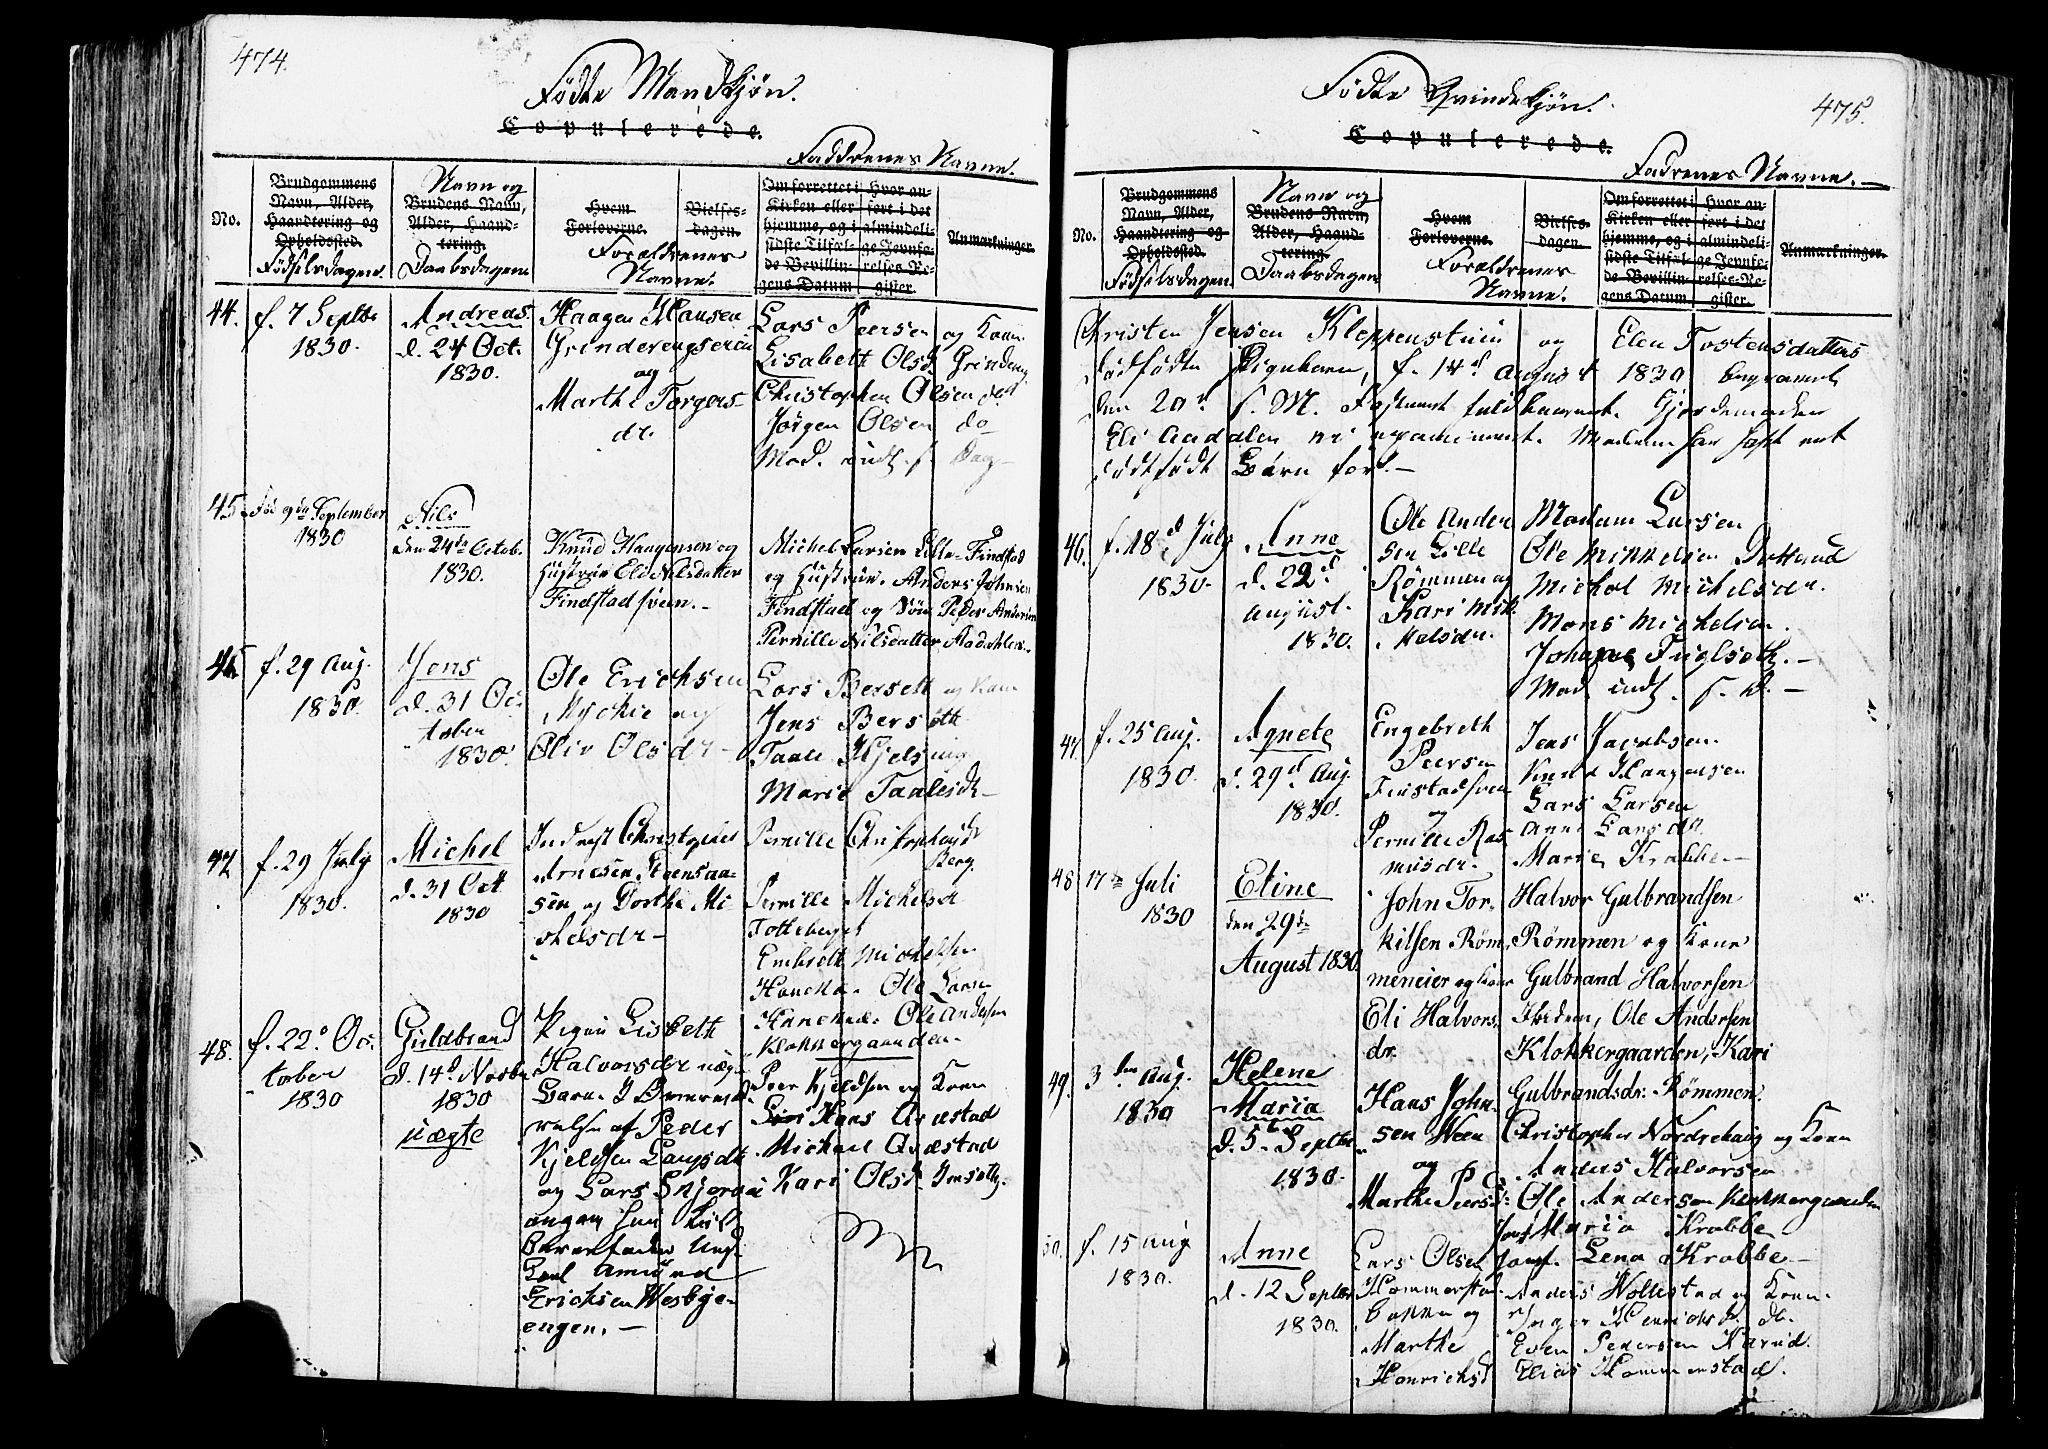 474.
Födte Mandkjön.
Copulerede.
Faddrenes Navne.
No.
Brudgommens Navn, Alder, Haandtering og Opholdssted.
Födselsdagen.
Navn og
Brudens Navn, Alder, Haandtering.
Daabsdagen
Hvem Forloverne.
Forældrenes
Navne.
Vielsesdagen.
Om forrettet i Kirken eller hjemme, og i sidste Tilfælde Bevillingens Datum
Hvor anført i det almindelige Jevnførelses-Register.
Anmærkninger.
44. f. 7 Septbr
1830.
Andreas.
d. 24 Oct.
1830.
Haagen Hansen
Grinderengseie
og
Marthe Torgers-
dr.
Lars Peersen og Kone
Lisabett Olsd. Grindereng
Christopher Olsen
Jörgen Olsen do
Mod. indt. s. Dag
45. September
1830
Nils
den 24de Octob.
1830.
Knud Haagensen og
Hustrue Eli Nilsdatter
Findstadsveen.
Michel Larsen Lille-Findstad
og Hustrue. Anders Johnsen
Findstad og Peder Andersen
Pernille Nilsdatter Aadahlen.
46. f. 29 Aug.
1830.
Jens
d. 31 Oc-
tober
1830.
Ole Erichsen
Myhrie og
Oliv Olsdr
Lars Bersett og Kone
Jens Bersett
Taale Kjelsing
Marie Taalesdr
47. f. 29 July
1830.
Michel
d. 31 Oct
1830
Inderst Christopher
Arnesen Steensaa-
sen og Dorthe Mi-
chelsdr
Pernille Christophersd
Berg.
Pernille Michelsd
Totteberget
Embrett Michelsen
Ole Larsen
48. f. 22de Oc-
tober
1830
Guldbrand
d. 14de Novbr
1830
uægte
Pigen Lisbeth
Halvorsdr uæg-
af Peder
Kjeldsen
og Lars
angav
Barnefader Ung-
karl Amund
Erichsen Wesbye-
engen.
Ole Andersen
Klokkergaarden.
Peer Kjeldsen og Kone
Hans Qvæstad
Michael Qvæstad
Kari Olsd. Imseth.
475.
Födte Qvindekjön.
Copulerede.
Fadrenes Navne.
No.
Brudgommens Navn, Alder, Haandtering og Opholdssted.
Födselsdagen.
Navn og
Brudens Navn, Alder, Haandtering.
Daabsdagen
Hvem Forloverne.
Forældrenes
Navne.
Vielsesdagen.
Om forrettet i Kirken eller hjemme, og i sidste Tilfælde Bevillingens Datum
Hvor anført i det almindelige Jevnførelses-Register.
Anmærkninger.
Christen Jensen Kleppenstuen og Elen Tostensdatters
dödfödte Pigebarn, f. 14d August 1830 begravet
den 20d s. M. Fosteret fuldbaaret. Gjordemoder
Eli Aadalen ei examineret. Moderen har havt eet
dödfödt Barn för.
46. f. 18d July
1830.
Anne
d. 22d
August.
1830.
Ole Ander-
sen Lille
Römmen og
Kari Mik-
kelsdr.
Madam Larsen
Ole Mikkelsen
Michol Michelsdr.
Mons Michelsen.
Johanne Fuglseth.
Mod. indt. s. D.
47. f. 25 Aug.
1830.
Agnete
d. 29d Aug.
1830.
Engebreth
Peersen
Finstadsveen
og
Pernille Ras-
musdr.
Jens Jacobsen.
Knud Haagensen
Lars Larsen
Anne Larsdr.
Marie Krabbe
48 17de Juli
1830
Eline
den 29de
August 1830.
John Tor-
kilsen Röm-
meneier og kone
Eli Halvors-
dr.
Halvor Gulbrandsen
Römmen og Kone
Gulbrand Halvorsen
Ibidem, Ole Andersen
Klokkergaarden, Kari
Gulbrandsdr. Römmen.
49. 3die Aug.
1830
Helene
Maria
d. 5 Septbr
1830.
Hans John-
sen Ween
og
Marthe Peersd.
Christopher Nordrehaug og Kone
Anders Halvorsen
Ole Andersen Klokkergaarden
Jomf. Maria Krabbe
Jomf. Lena Krabbe
50. f. 15 Aug
1830.
Anne
d. 12 Septbr
1830.
Lars Olsen
Hommerstad-
bakken og
Marthe
Henrichsd
Anders Wollestad og Kone
Inger Henrichsd. do.
Even Pedersen
Elias Hommerstad.